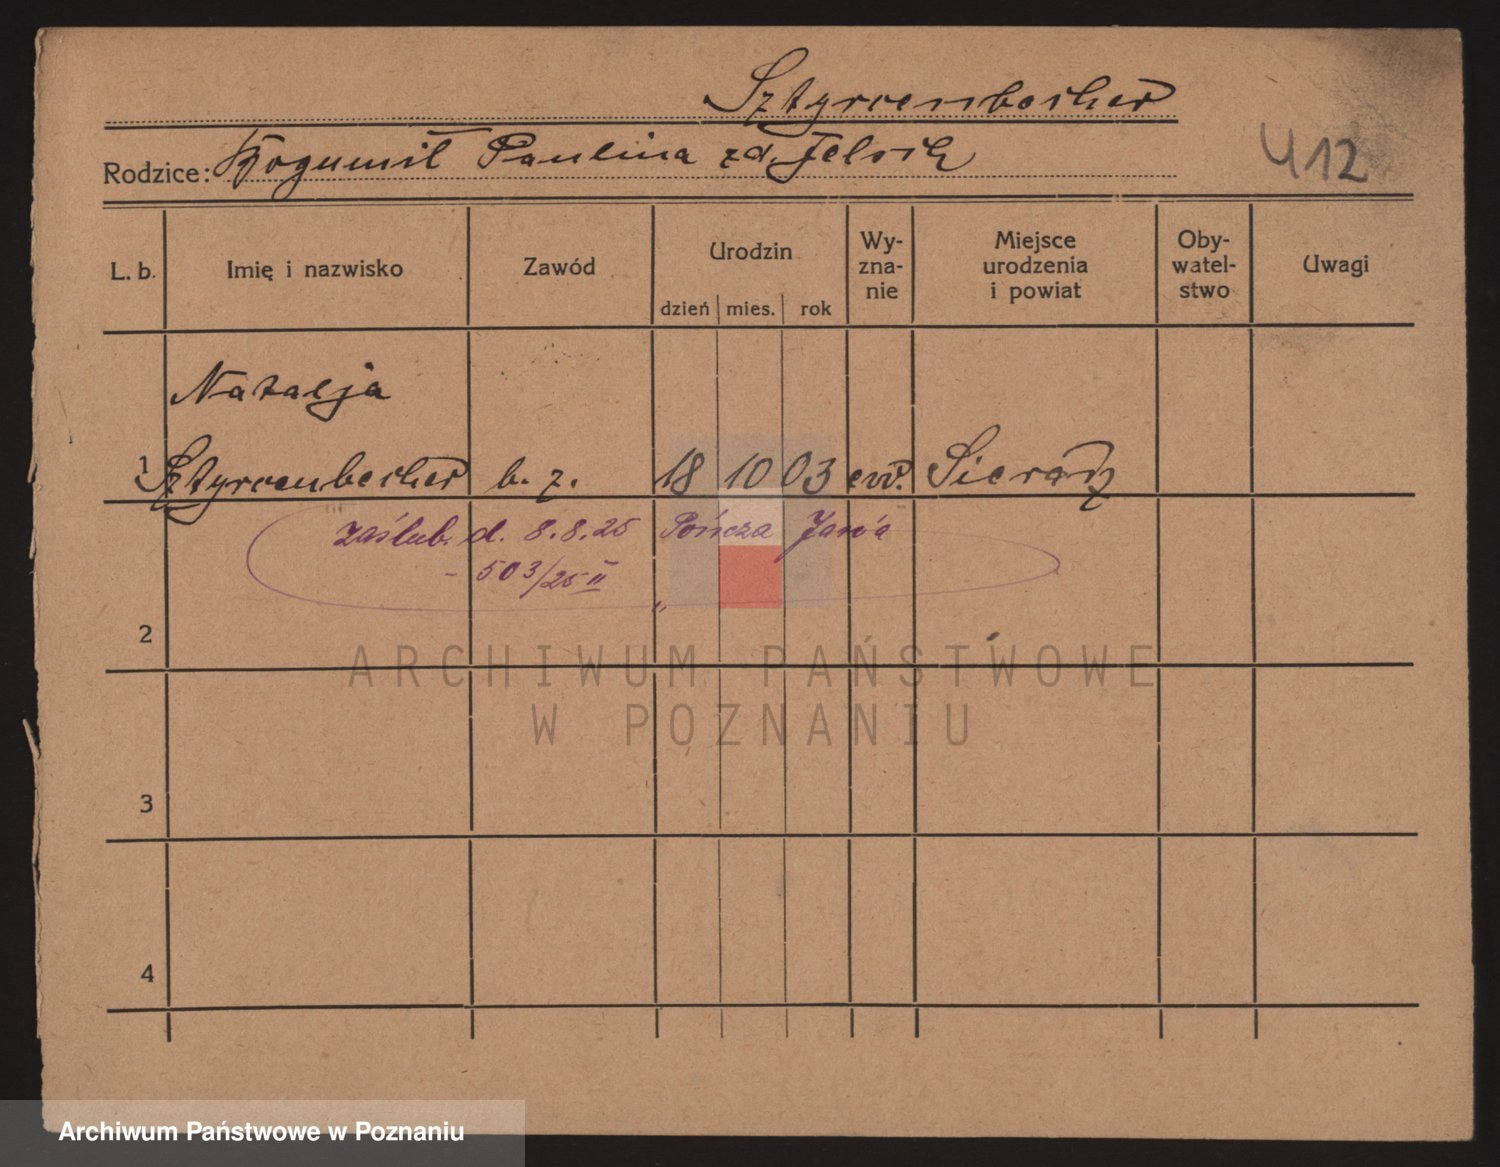 Sztyrcenbecher
412
Rodzice: Bogumił Paulina zd. Jelsch
L. b. Imię i nazwisko Zawód Urodzin dzień mies. rok Wy-zna-nie Miejsce urodzenia i powiat Oby-watel-stwo Uwagi
Natalja
1 Sztyrcenbecher b. z. 18 10 03 ew. Sieradz
zaślub. d. 8.8.25 Jana
- 503/25 II
2
ARCHIWUM PAŃSTWOWE
W POZNANIU
3
4
Archiwum Państwowe w Poznaniu